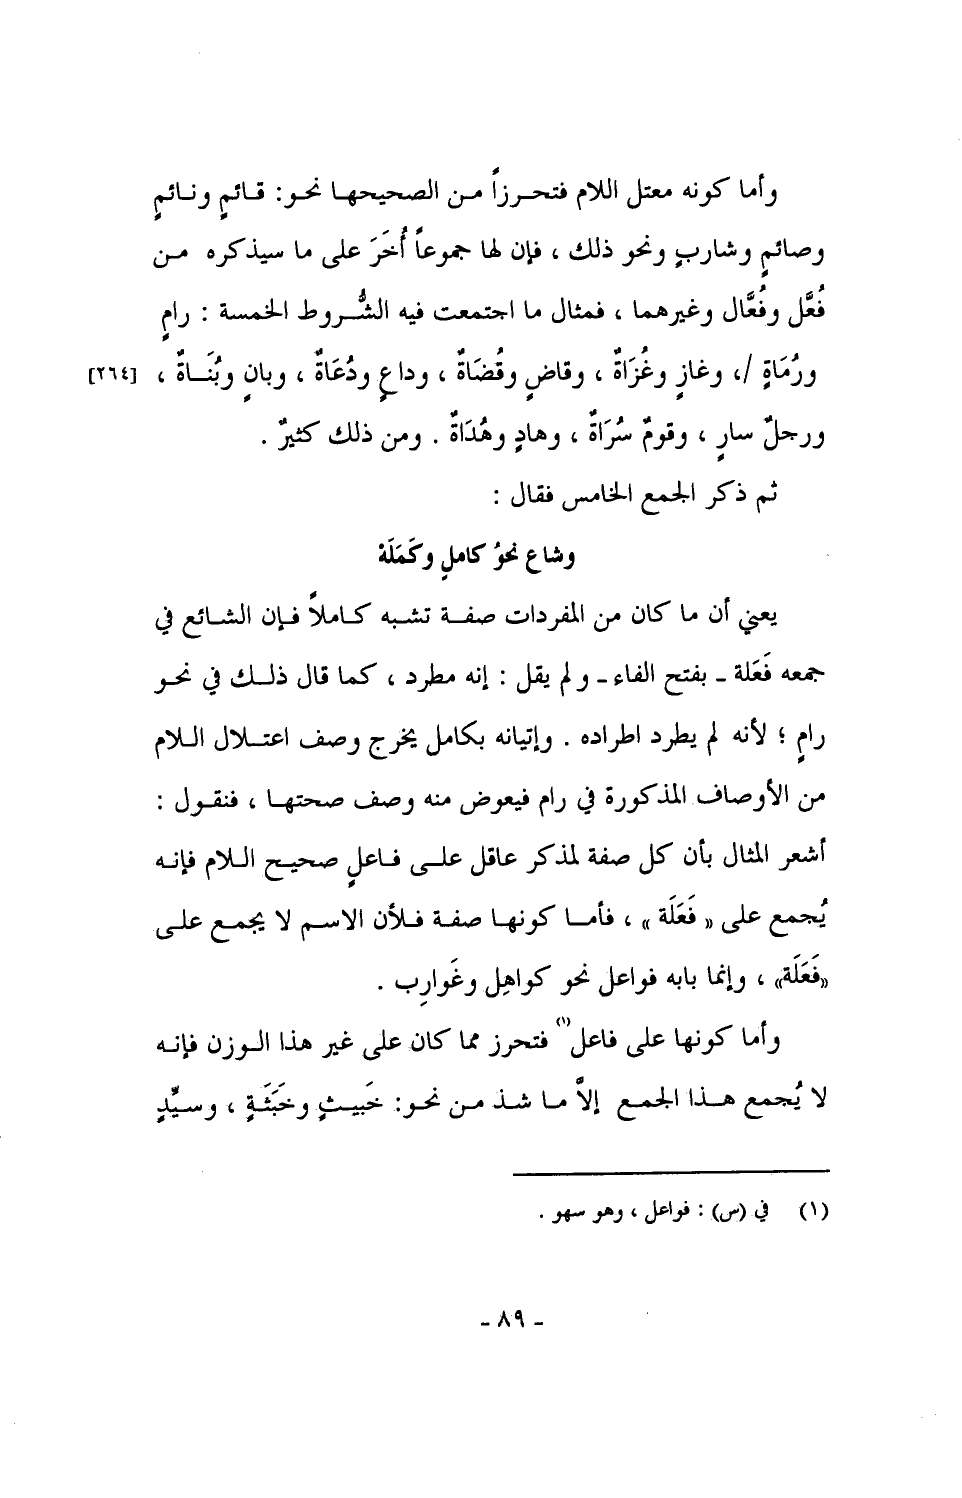 وأما كونه معتل اللام فتحرزاً من الصحيحها نحو: قائمٍ ونائمٍ
وصائمٍ وشاربٍ ونحو ذلك ، فإن لها جموعاً أُخَرَ على ما سيذكره من
فُعَّل وفُعَّال وغيرهما ، فمثال ما اجتمعت فيه الشُّروط الخمسة : رامٍ
ورُمَاةٍ /، وغازٍ وغُزَاةٌ ، وقاضٍ وقُضَاةٌ ، وداعٍ ودُعَاةٌ ، وبانٍ وبُنَاةٌ ، [٢٦٤]
ورجلٌ سارٍ ، وقومٌ سُرَاةٌ ، وهادٍ وهُدَاةٌ . ومن ذلك كثيرٌ .
ثم ذكر الجمع الخامس فقال :
وشاع نحوُ كاملٍ وكَمَلَهْ
يعني أن ما كان من المفردات صفة تشبه كاملاً فإن الشائع في
جمعه فَعَلة ـ بفتح الفاء ـ ولم يقل : إنه مطرد ، كما قال ذلك في نحو
رامٍ ؛ لأنه لم يطرد اطراده . وإتيانه بكامل يخرج وصف اعتلال اللام
من الأوصاف المذكورة في رام فيعوض منه وصف صحتها ، فنقول :
أشعر المثال بأن كل صفة لمذكر عاقل على فاعلٍ صحيح اللام فإنه
يُجمع على « فَعَلَة » ، فأما كونها صفة فلأن الاسم لا يجمع على
«فَعَلَة» ، وإنما بابه فواعل نحو كواهِل وغَوارِب .
وأما كونها على فاعل(١) فتحرز مما كان على غير هذا الوزن فإنه
لا يُجمع هذا الجمع إلاَّ ما شذ من نحو: خَبيثٍ وخَبَثَةٍ ، وسيِّدٍ
(١) في (س) : فواعل ، وهو سهو .
- ٨٩ -